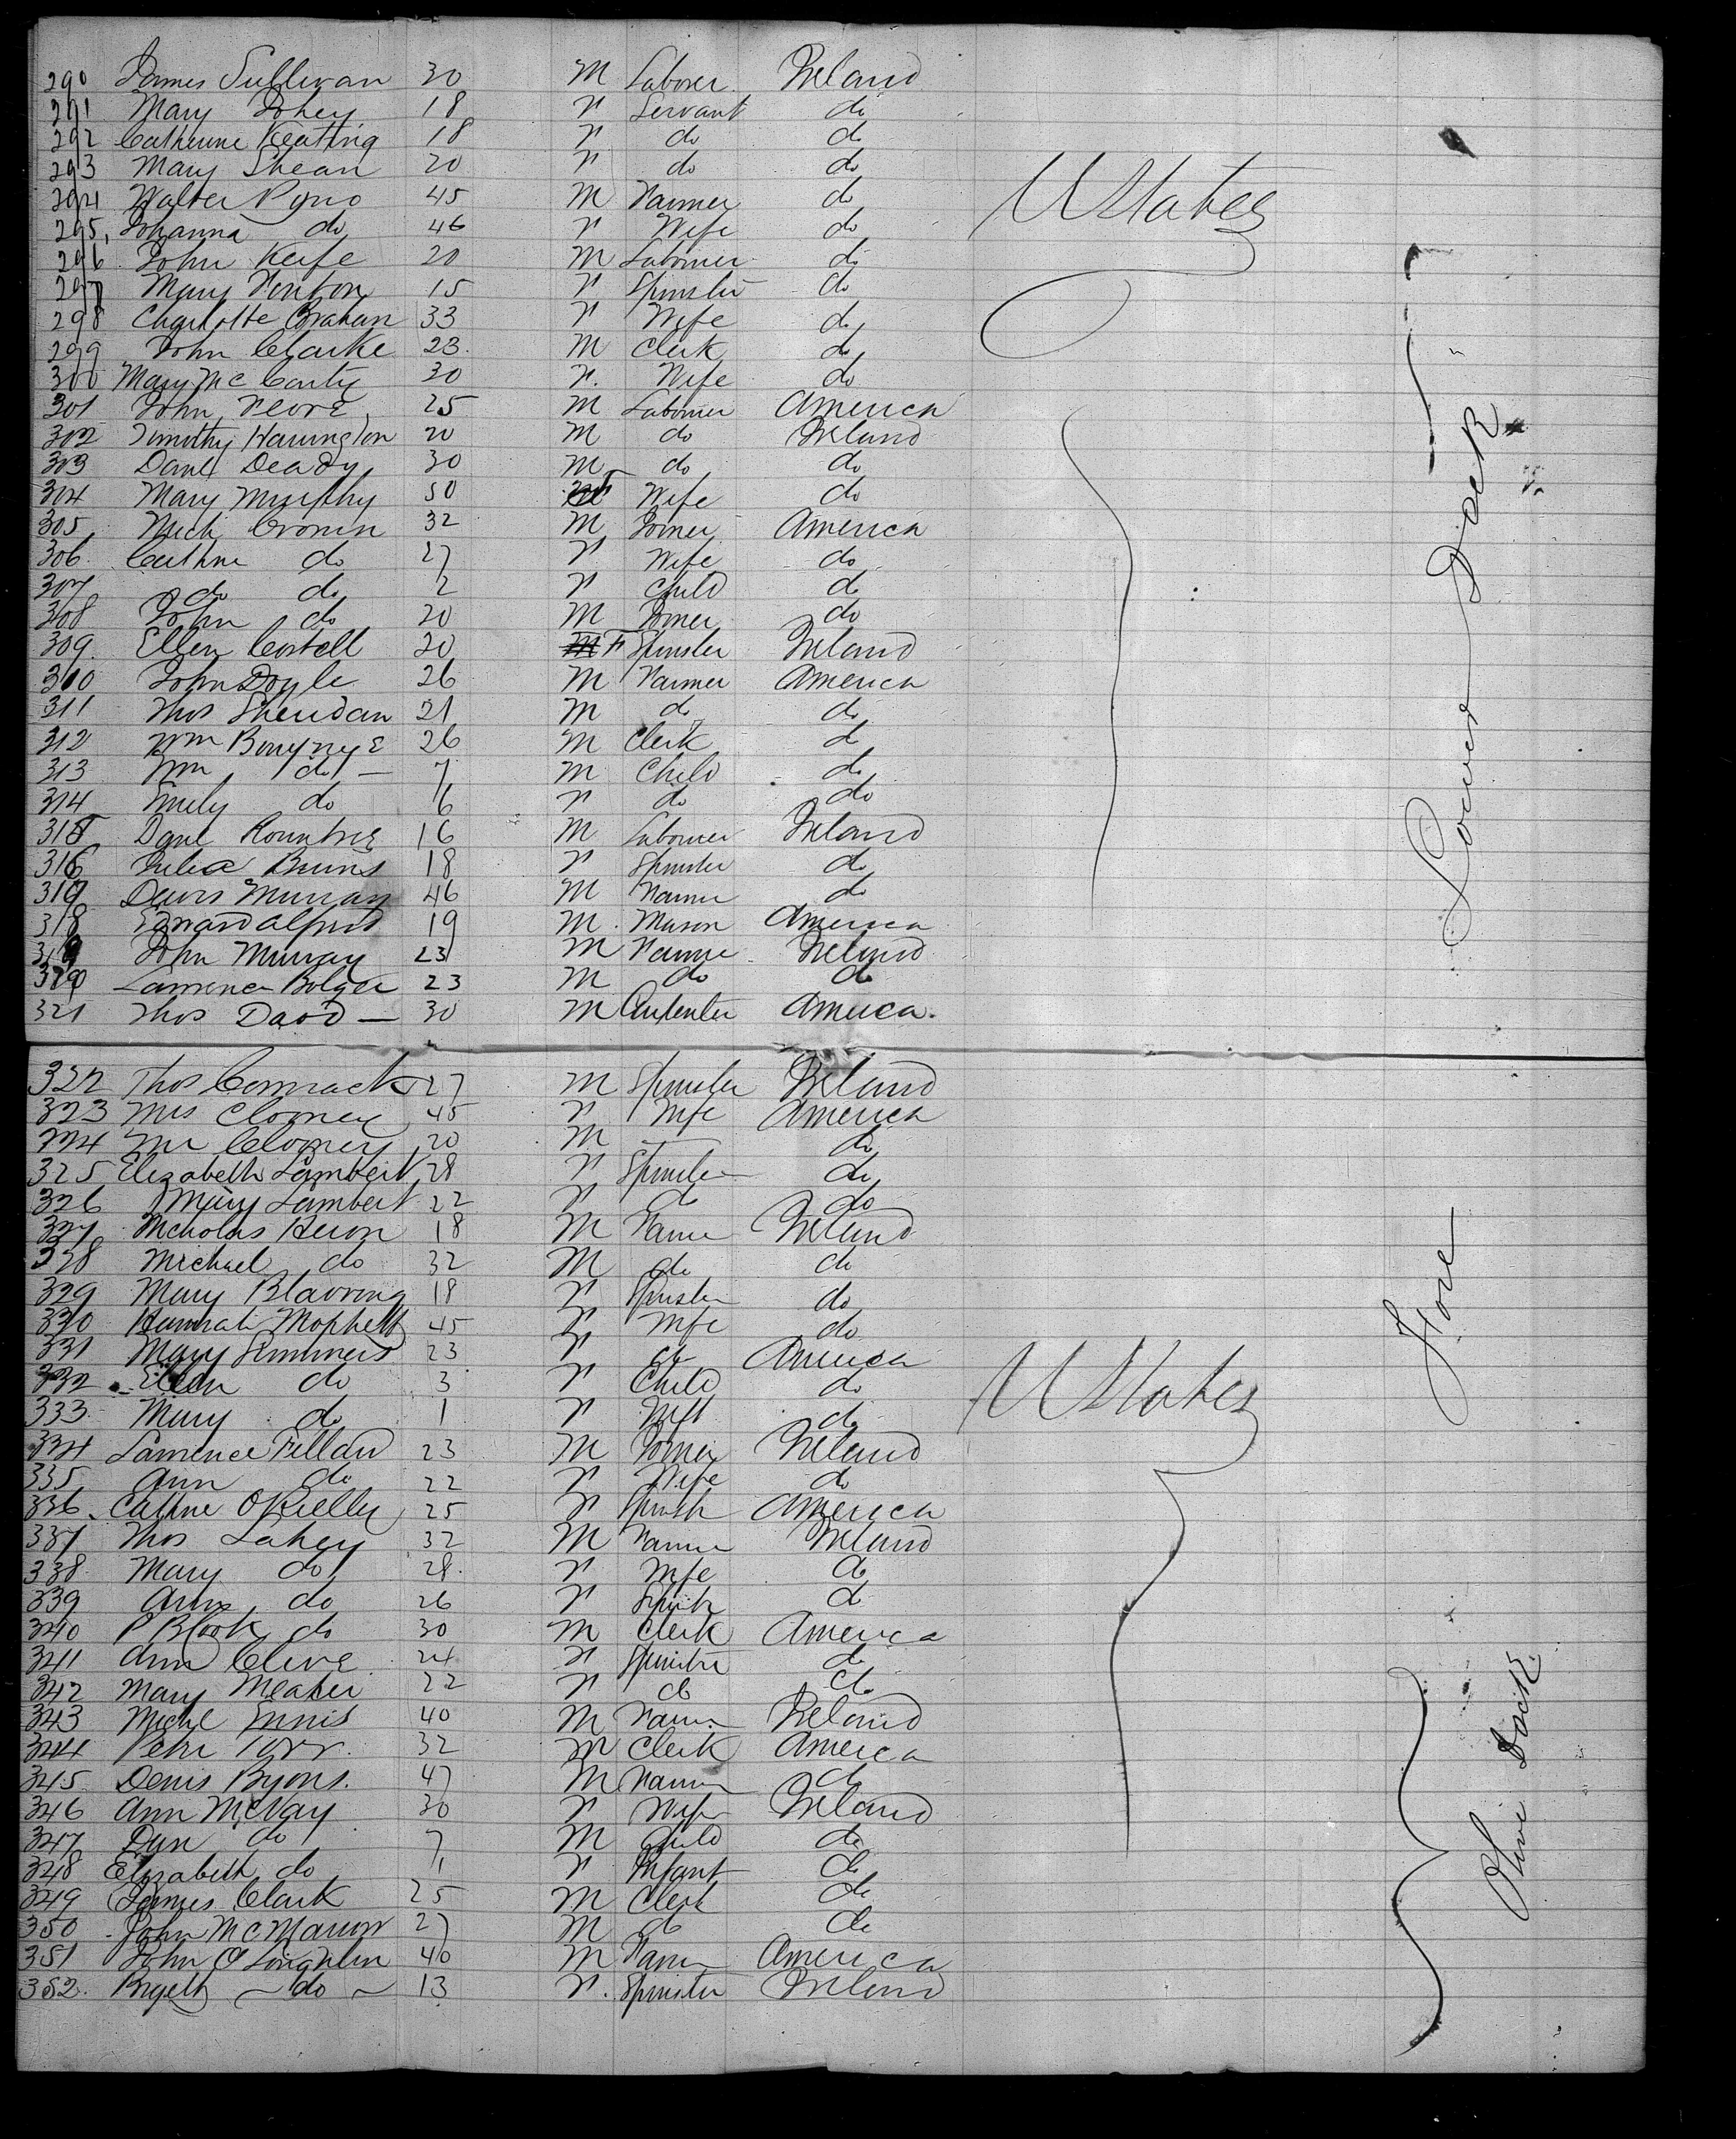 290 James Sullivan 30 M Laborer Ireland
291 Mary Fohey 18 F Servant do
292 Catherine Keating 18 F do do
293 Mary Shean 20 F do do
294 Walter Pyno 45 M Farmer do
295 Johanna do 46 F Wife do
296 John Keefe 20 M Labourer do
297 Mary Fenton 15 F Spinster do
298 Charlotte Graham 33 F Wife do
299 John Clarke 23 M Clerk do
300 Mary McCarty 30 F. Wife do
301 John 25 M Labourer America
302 Timothy Harrington 20 M do Ireland
303 Danl Deady 30 M do do
304 Mary Murphy 50 F Wife do
305 Mich Cronin 32 M Joiner America
306 Cathne do 27 F Wife do
307 do do 2 F Child do
308 John do 20 M Joiner do
309 Ellen Costell 20 F Spinster Ireland
310 John Doyle 26 M Farmer America
311 Thos Sheridan 21 M do do
312 Wm 26 M Clerk do
313 Wm do — 7 M Child do
314 Emily do 6 F do do
315 Danl Rountree 16 M Labourer Ireland
316 Julia Burns 18 F Spinster do
317 Denis Murray 46 M Farmer do
318 Edward Alfred 19 M Mason America
319 John Murray 23 M Farmer Ireland
320 Lawrence Bolger 23 M do do
321 Thos Daod — 30 M Carpenter America.
322 Thos Cormack 27 M Spinster Ireland
323 Mrs Clooney 45 F Wife America
324 Mr Clooney 20 M — do
325 Elizabeth Lambert 28 F Spinster do
326 Mary Lambert 22 F do do
327 Nicholas Heron 18 M Farmer Ireland
328 Michael do 32 M do do
329 Mary 18 F Spinster do
330 Hannah 45 F Wife do
331 Mary Simmers 23 F do America
332 Ellen do 3 F Child do
333 Mary do 1 F Inft do
334 Lawrence Fellard 23 M Joiner Ireland
335 Ann do 22 F Wife do
336 Cathne O'Rielly 25 F Spinstr America
337 Thos Lahey 32 M Farmer Ireland
338 Mary do 28 F Wife do
339 Ann do 26 F Spinstr do
340 P Block do 30 M Clerk America
341 Ann Clive 24 F Spinster do
342 Mary Meaher 22 F do do
343 Michl Ennis 40 M Farmer Ireland
344 Peter Torr 32 M Clerk America
345 Denis Byons. 47 M Farmer do
346 Ann McVay 30 F Wife Ireland
347 Dan do 7 M Child do
348 Elizabeth do 1 F Infant do
349 James Clark 25 M Clerk do
350 John McMarion 27 M do do
351 John O Loughlin 40 M Farmer America
352. Brgett — do — 13 F. Spinster Ireland
U States
U States
Lower Deck
Fore